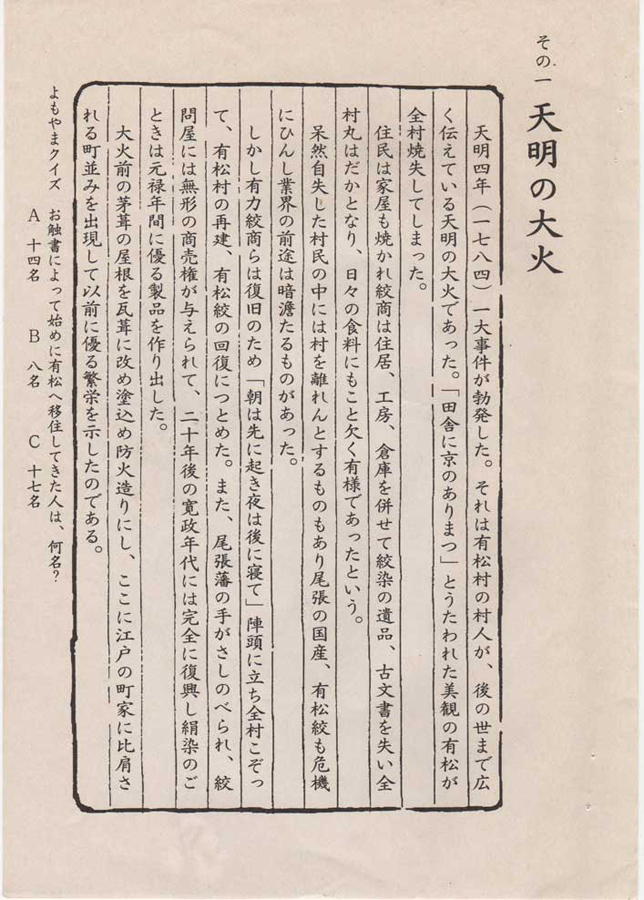 その一 天明の大火
天明四年（一七八四）一大事件が勃発した。それは有松村の村人が、後の世まで広
く伝えている天明の大火であった。「田舎に京のありまつ」とうたわれた美観の有松が
全村焼失してしまった。
住民は家屋も焼かれ絞商は住居、工房、倉庫を併せて絞染の遺品、古文書を失い全
村丸はだかとなり、日々の食料にもこと欠く有様であったという。
呆然自失した村民の中には村を離れんとするものもあり尾張の国産、有松絞も危機
にひんし業界の前途は暗澹たるものがあった。
しかし有力絞商らは復旧のため「朝は先に起き夜は後に寝て」陣頭に立ち全村こぞっ
て、有松村の再建、有松絞の回復につとめた。また、尾張藩の手がさしのべられ、絞
問屋には無形の商売権が与えられて、二十年後の寛政年代には完全に復興し絹染のご
ときは元禄年間に優る製品を作り出した。
大火前の茅葺の屋根を瓦葺に改め塗込め防火造りにし、ここに江戸の町家に比肩さ
れる町並みを出現して以前に優る繁栄を示したのである。
よもやまクイズ お触書によって始めに有松へ移住してきた人は、何名？
A 十四名 B 八名 C 十七名